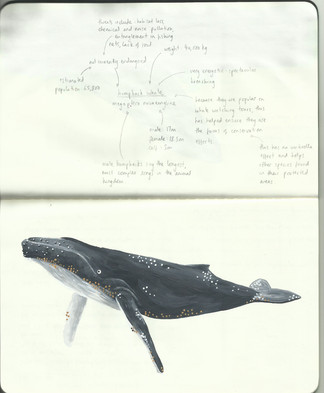 threats include: habitat loss,
chemical and noise pollution,
entanglement in fishing
nets, lack of food
weight: 30,000 kg
not currently endangered
very energetic
breaching
estimated
population
humpback whale
megaptera novaeangliae
because they are popular on
whale watching tours, this
has helped
the focus of conservation
efforts.
male: 
female: 
calf: 
this has an umbrella
effect and helps
other species found
in their protected
areas.
male humpbacks sing the longest,
most complex songs in the animal
kingdom